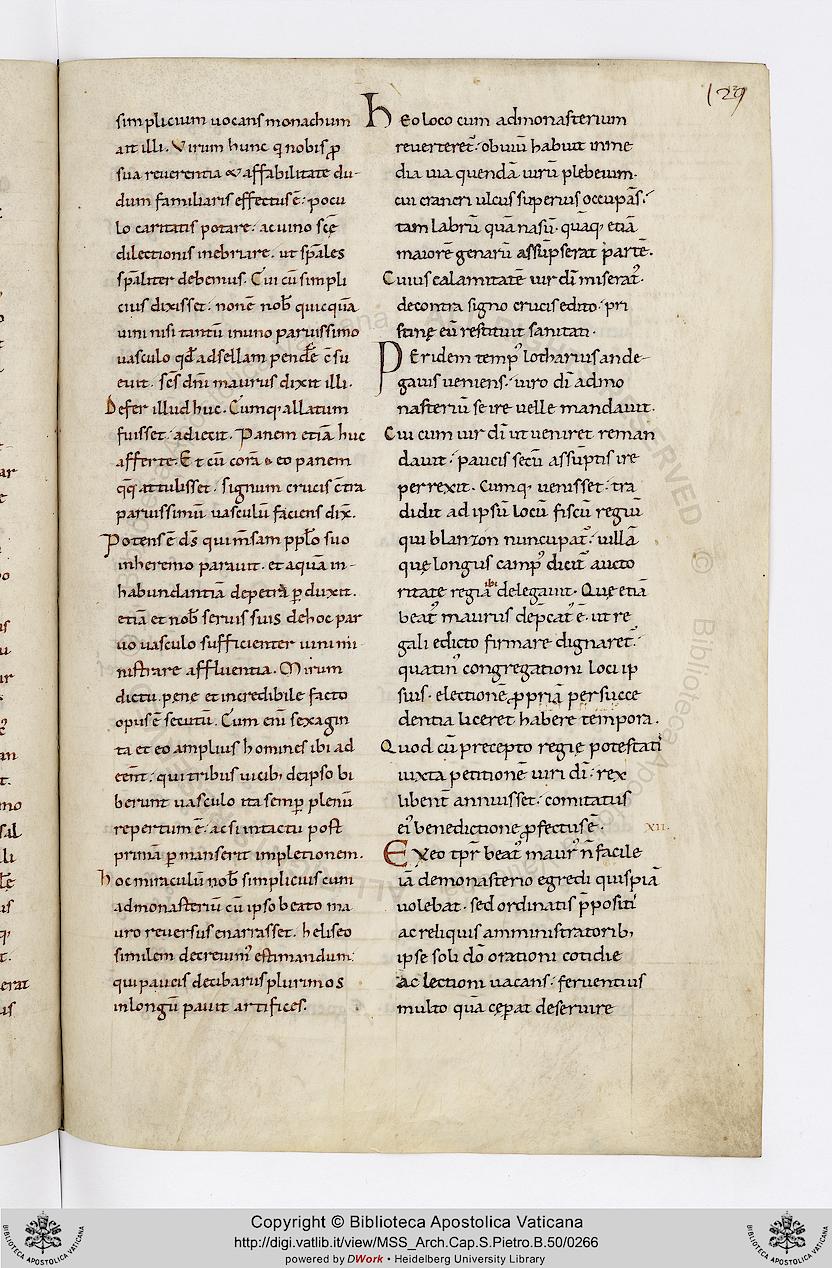 129
simplicium uocans monachum
ait illi. Virum hunc q nobis ꝓ
sua reuerentia & affabilitate du-
dum familiaris effectus ē. pocu
lo caritatis potare. ac uino scę
dilectionis inebriare. ut spales
spaliter debemus. Cui cū simpli
cius dixisset. non ē nob quicquā
uini nisi tantū in uno paruissimo
uasculo qd ad sellam pendē ɔsu
euit. scs dni maurus dixit illi.
Defer illud huc. Cumq; allatum
fuisset. adiecit. Panem etiā huc
afferte. Et cū corā eo panem
qq; attulisset. signum crucis ɔtra
paruissimū uasculū faciens dix.
Potens ē ds qui msam pplo suo
in heremo parauit. et aquā in-
habundantiā de petra ꝑduxit.
etiā et nob seruis suis de hoc par
uo uasculo sufficienter uini mi
nistrare affluentia. Mirum
dictu pene et incredibile facto
opus ē secutū. Cum eni sexagin
ta et eo amplius homines ibi ad
eent. qui tribus uicib; de ipso bi
berunt uasculo ita semꝑ plenū
repertum ē. ac si intactu post
primā ꝑmanserit impletionem.
hoc miraculū nob simplicius cum
ad monasteriū cū ipso beato ma
uro reuersus enarrasset. heliseo
similem decreuim estimandum.
qui paucis de cibariis plurimos
in longū pauit artifices.
h Eo loco cum ad monasterium
reuerteret. obuiū habuit in me
dia uia quendā uirū plebeium.
cui cancri ulcus superius occupās
tam labrū quā nasū. quāq; etiā
maiorē genarū assūpserat partē.
Cuius calamitatē uir di miserat
de contra signo crucis edito. pri
stinę eū restituit sanitati.
P Er idem temp lotharius ande-
gauis ueniens. uiro di ad mo
nasteriū se ire uelle mandauit.
Cui cum uir di ut ueniret reman
dauit. paucis secū assūptis ire
perrexit. Cumq; uenisset. tra
didit ad ipsū locū fiscū regiū
qui blanzon nuncupat. uillā
quę longus camp dicit aucto
ritate regia ibi delegauit. Quę etiā
beat maurus depcat ē. ut re
gali edicto firmare dignaret.
quatin congregationi loci ip
sius. electionē ꝓpriā per succe
dentia liceret habere tempora.
Quod cū precepto regię potestati
iuxta petitionē uiri di. rex
libent annuisset. comitatus
ei benedictione ꝓfectus ē.
XII.
Ex eo tpr beat maur n facile
iā de monasterio egredi quispiā
uolebat. sed ordinatis ppositi
ac reliquis amministratorib;
ipse soli do orationi cotidie
ac lectioni uacans. feruentius
multo quā cęperat deseruire
Copyright © Biblioteca Apostolica Vaticana
http://digi.vatlib.it/view/MSS_Arch.Cap.S.Pietro.B.50/0266
powered by DWork • Heidelberg University Library